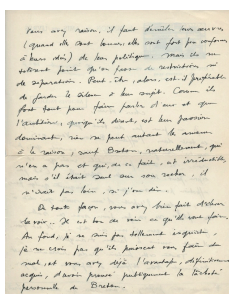 Vous avez raison, il faut dissocier leurs œuvres
(quand elles sont bonnes, elles sont fort peu conformes
à leurs dires) de leur politique, mais ils ne
tolèrent point qu'on fasse de restrictions ni
de séparation. Peut-être, alors, est-il préférable
de garder le silence à leur sujet. Comme ils
font tout pour faire parler d'eux et que
l'ambition, quoiqu'ils disent, est leur passion
dominante, rien ne peut autant les amener
à la raison, sauf Breton, naturellement, qui
n'en a pas et qui, de ce fait, est irréductible,
mais s'il était seul sur son rocher, il
n'irait pas loin, si j'ose dire.
De toute façon, vous avez bien fait d'élever
la voix. Il est bon de voir ce qu'ils vont faire.
Au fond, je ne suis pas tellement inquiet,
je ne crois pas qu'ils puissent vous faire du
mal, et vous avez déjà l'avantage, définitivement
acquis, d'avoir prouvé publiquement la lâcheté
personnelle de Breton.